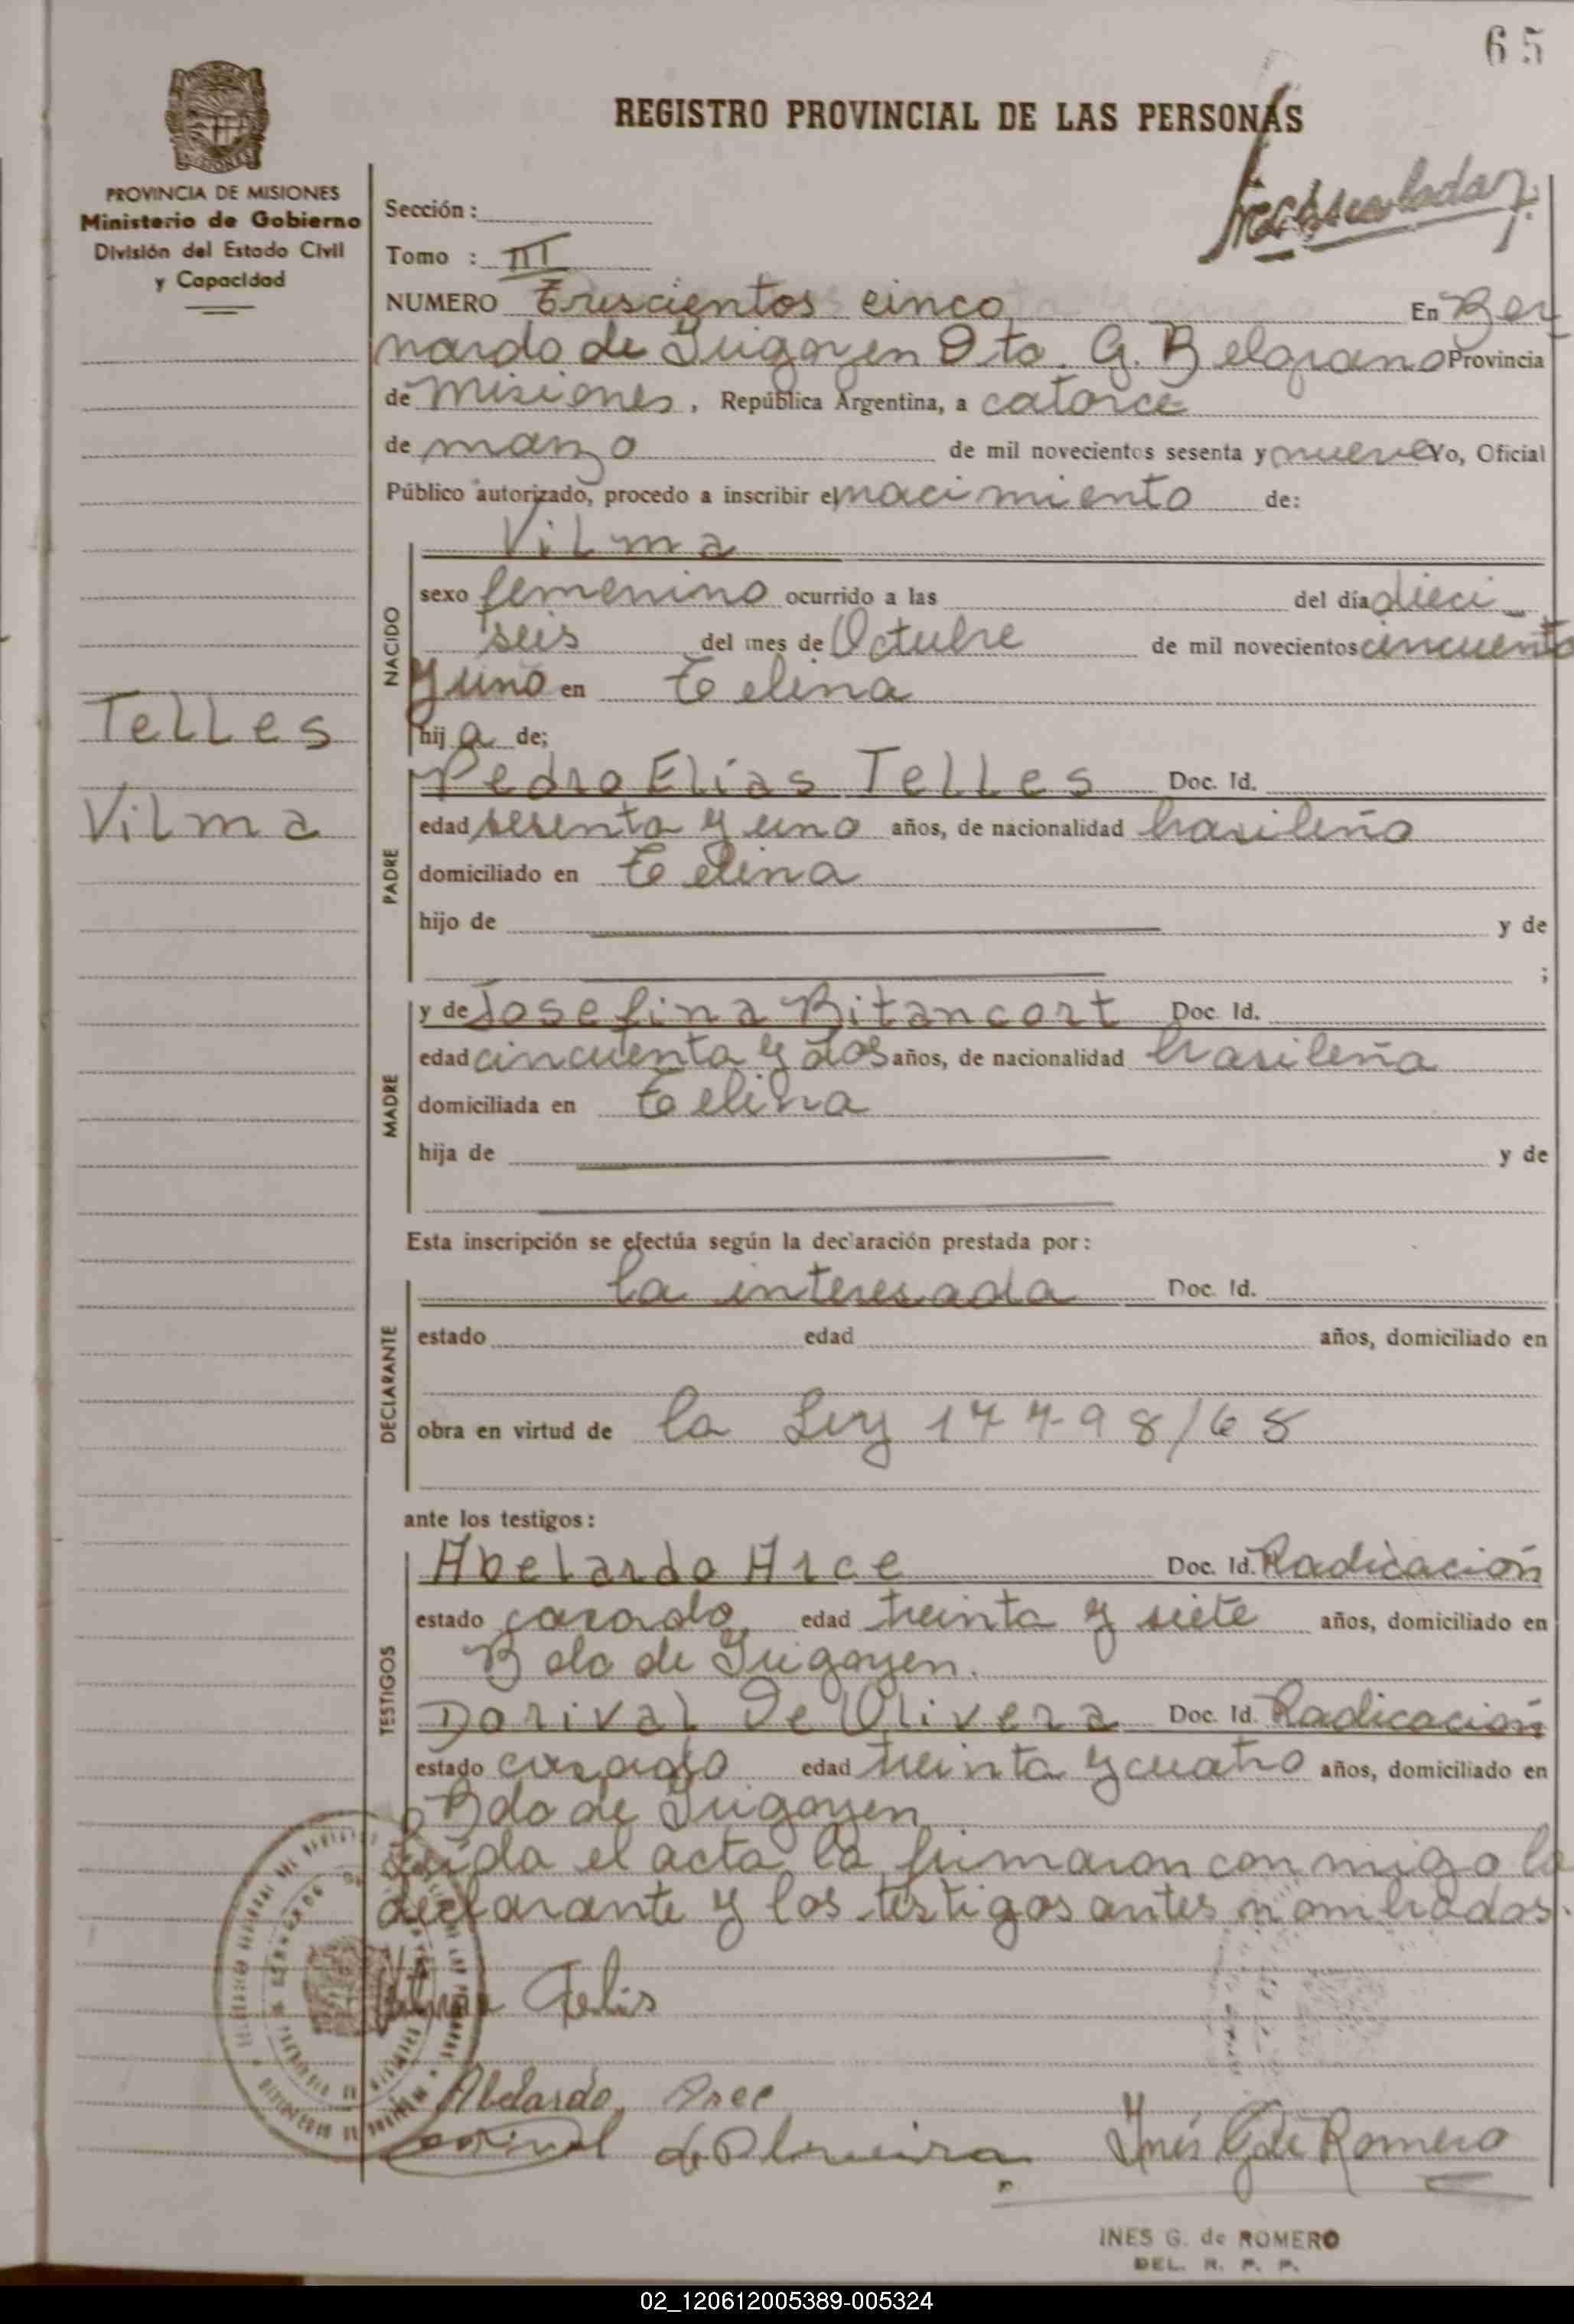 65
REGISTRO PROVINCIAL DE LAS PERSONAS
PROVINCIA DE MISIONES
Ministerio de Gobierno
División del Estado Civil
y Capacidad
Sección :
Tomo : III
NUMERO Trescientos cinco En Ber
nardo de Irigoyen Dto. G. Belgrano Provincia
de Misiones, República Argentina, a catorce
de marzo de mil novecientos sesenta y nueve Yo, Oficial
Público autorizado, procedo a inscribir el nacimiento de:
Vilma
NACIDO
sexo femenino ocurrido a las del día dieci
seis del mes de Octubre de mil novecientos cincuenta
y uno en Celina
hija de;
Telles
Vilma
PADRE
Pedro Elias Telles Doc. Id.
edad sesenta y uno años, de nacionalidad brasileño
domiciliado en Celina
hijo de y de
;
MADRE
y de Josefina Bitancort Doc. Id.
edad cincuenta y dos años, de nacionalidad brasileña
domiciliada en Celina
hija de y de
Esta inscripción se efectúa según la declaración prestada por:
DECLARANTE
la interesada Doc. Id.
estado edad años, domiciliado en
obra en virtud de la Ley 17498/68
ante los testigos:
TESTIGOS
Abelardo Arce Doc. Id. Radicación
estado casado edad treinta y siete años, domiciliado en
Bdo de Irigoyen.
Dorival De Olivera Doc. Id. Radicación
estado casado edad treinta y cuatro años, domiciliado en
Bdo de Irigoyen
Leída el acta, la firmaron conmigo la
declarante y los testigos antes nombrados.
Vilma Telis
Abelardo Arce
Dorival de Oliveira
Inés G de Romero
INES G. de ROMERO
DEL. R. P. P.
02_120612005389-005324